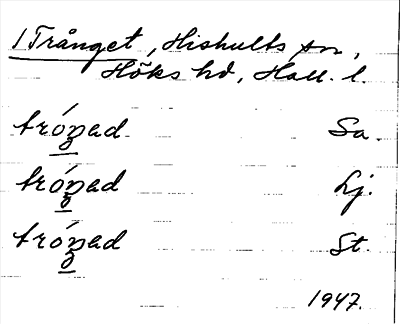 1 Trånget, Hishults sn,
Höks hd, Hall. l.
tróŋad Sa.
tróŋad Lj.
tróŋad St.
1947.